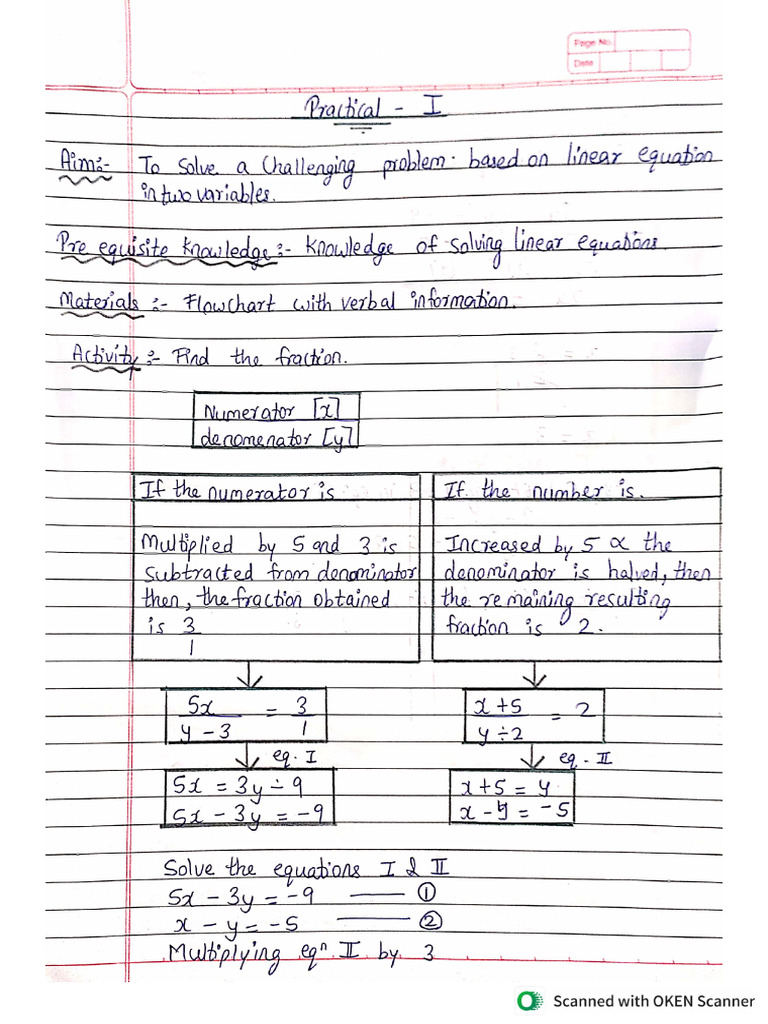 Page No.
Date
Practical - I
Aim:- To solve a challenging problem. based on linear equation
in two variables.
Pre equisite knowledge:- Knowledge of solving linear equations.
Materials:- Flowchart with verbal information.
Activity:- Find the fraction.
Numerator [x]
denomenator [y]
If the numerator is
Multiplied by 5 and 3 is
subtracted from denominator
then, the fraction obtained
is 3
1
If the number is.
Increased by 5 & the
denominator is halved, then
the remaining resulting
fraction is 2.
5x/(y - 3) = 3/1
eq. I
5x = 3y - 9
5x - 3y = -9
(x + 5)/(y ÷ 2) = 2
eq. II
x + 5 = y
x - y = -5
Solve the equations I & II
5x - 3y = -9 —— ①
x - y = -5 —— ②
Multiplying eqⁿ II by 3
Scanned with OKEN Scanner